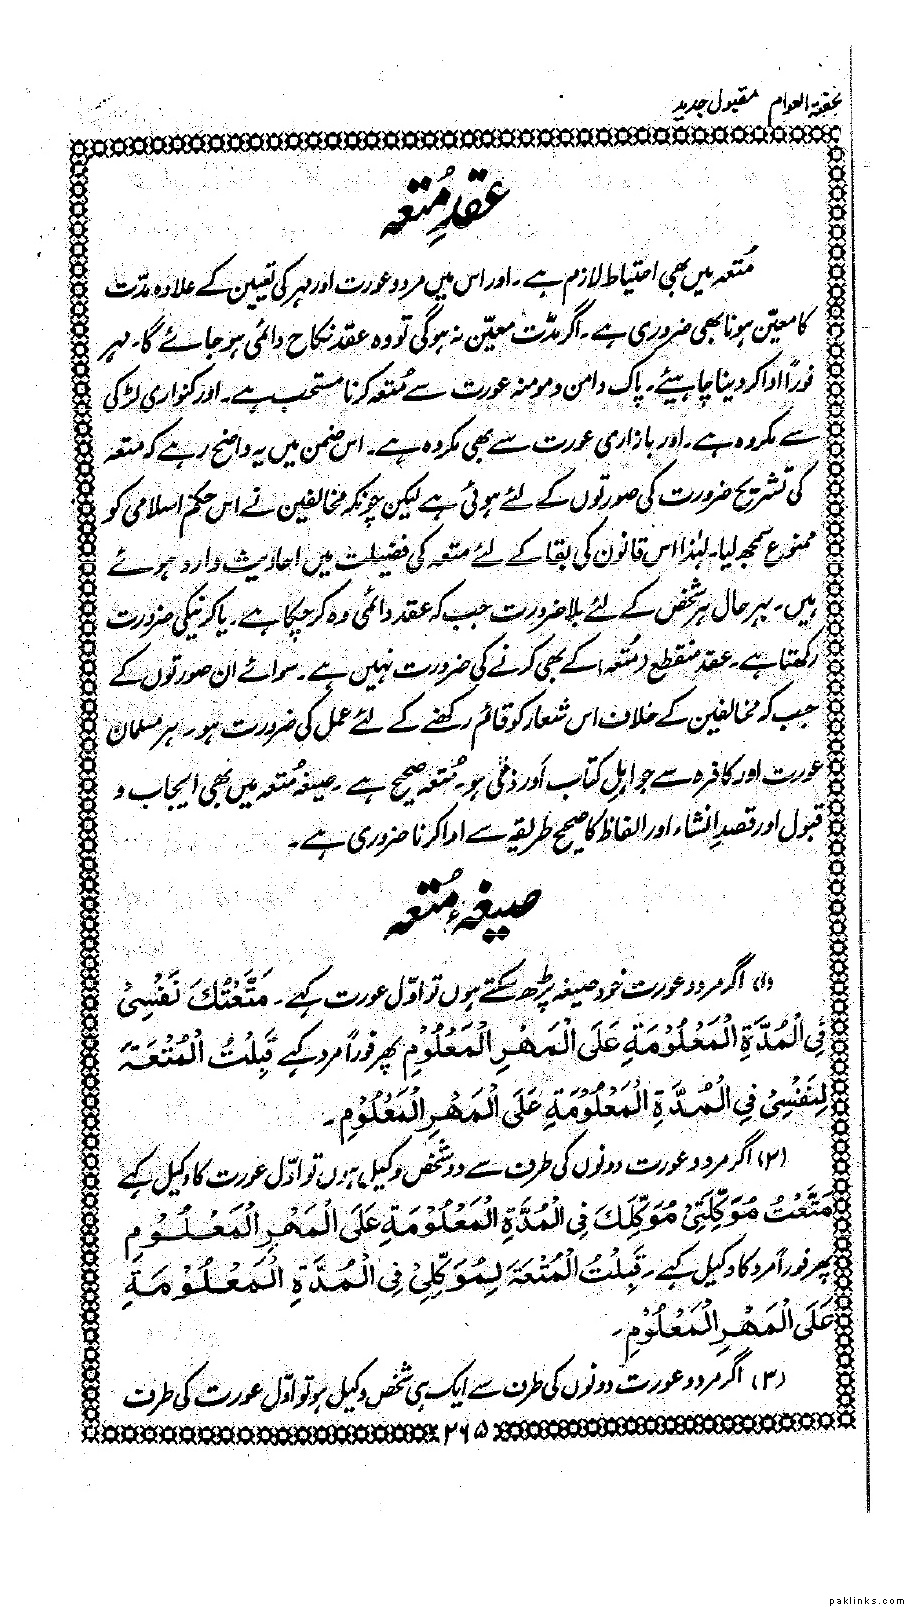 تحفۃ العوام مقبول جدید
عقدِ مُتعہ
مُتعہ میں بھی احتیاط لازم ہے۔ اور اس میں مرد و عورت اور مہر کی تعیین کے علاوہ مدّت
کا معیّن ہونا بھی ضروری ہے۔ اگر مدّت معیّن نہ ہوگی تو وہ عقد نکاح دائمی ہو جائے گا۔ مہر
فوراً ادا کر دینا چاہیئے۔ پاک دامن و مومنہ عورت سے مُتعہ کرنا مستحب ہے۔ اور کنواری لڑکی
سے مکروہ ہے۔ اور بازاری عورت سے بھی مکروہ ہے۔ اس ضمن میں یہ واضح رہے کہ متعہ
کی تشریح ضرورت کی صورتوں کے لئے ہوئی ہے لیکن چونکہ مخالفین نے اس حکم اسلامی کو
ممنوع سمجھ لیا۔ لہٰذا اس قانون کی بقا کے لئے متعہ کی فضیلت میں احادیث وارد ہوئے
ہیں۔ بہر حال ہر شخص کے لئے بلا ضرورت جب کہ عقد دائمی وہ کر چکا ہے۔ یا کرنیکی ضرورت
رکھتا ہے۔ عقد منقطع (مُتعہ) کے بھی کرنے کی ضرورت نہیں ہے۔ سوائے ان صورتوں کے
جب کہ مخالفین کے خلاف اس شعار کو قائم رکھنے کے لئے عمل کی ضرورت ہو۔ ہر مسلمان
عورت اور کافرہ سے جو اہلِ کتاب اور ذمّی ہو۔ مُتعہ صحیح ہے۔ صیغۂ مُتعہ میں بھی ایجاب و
قبول اور قصدِ انشاء اور الفاظ کا صحیح طریقہ سے ادا کرنا ضروری ہے۔
صیغۂ مُتعہ
(۱) اگر مرد و عورت خود صیغہ پڑھ سکتے ہوں تو اوّل عورت کہے۔ مَتَّعْتُكَ نَفْسِيْ
فِي الْمُدَّةِ الْمَعْلُوْمَةِ عَلَى الْمَهْرِ الْمَعْلُوْمِ پھر فوراً مرد کہے قَبِلْتُ الْمُتْعَةَ
لِنَفْسِيْ فِي الْمُدَّةِ الْمَعْلُوْمَةِ عَلَى الْمَهْرِ الْمَعْلُوْمِ۔
(۲) اگر مرد و عورت دونوں کی طرف سے دو شخص وکیل ہوں تو اوّل عورت کا وکیل کہے
مَتَّعْتُ مُوَكِّلَتِيْ مُوَكِّلَكَ فِي الْمُدَّةِ الْمَعْلُوْمَةِ عَلَى الْمَهْرِ الْمَعْلُوْمِ
پھر فوراً مرد کا وکیل کہے۔ قَبِلْتُ الْمُتْعَةَ لِمُوَكِّلِيْ فِي الْمُدَّةِ الْمَعْلُوْمَةِ
عَلَى الْمَهْرِ الْمَعْلُوْمِ۔
(۳) اگر مرد و عورت دونوں کی طرف سے ایک ہی شخص وکیل ہو تو اوّل عورت کی طرف
۲۶۵
paklinks.com